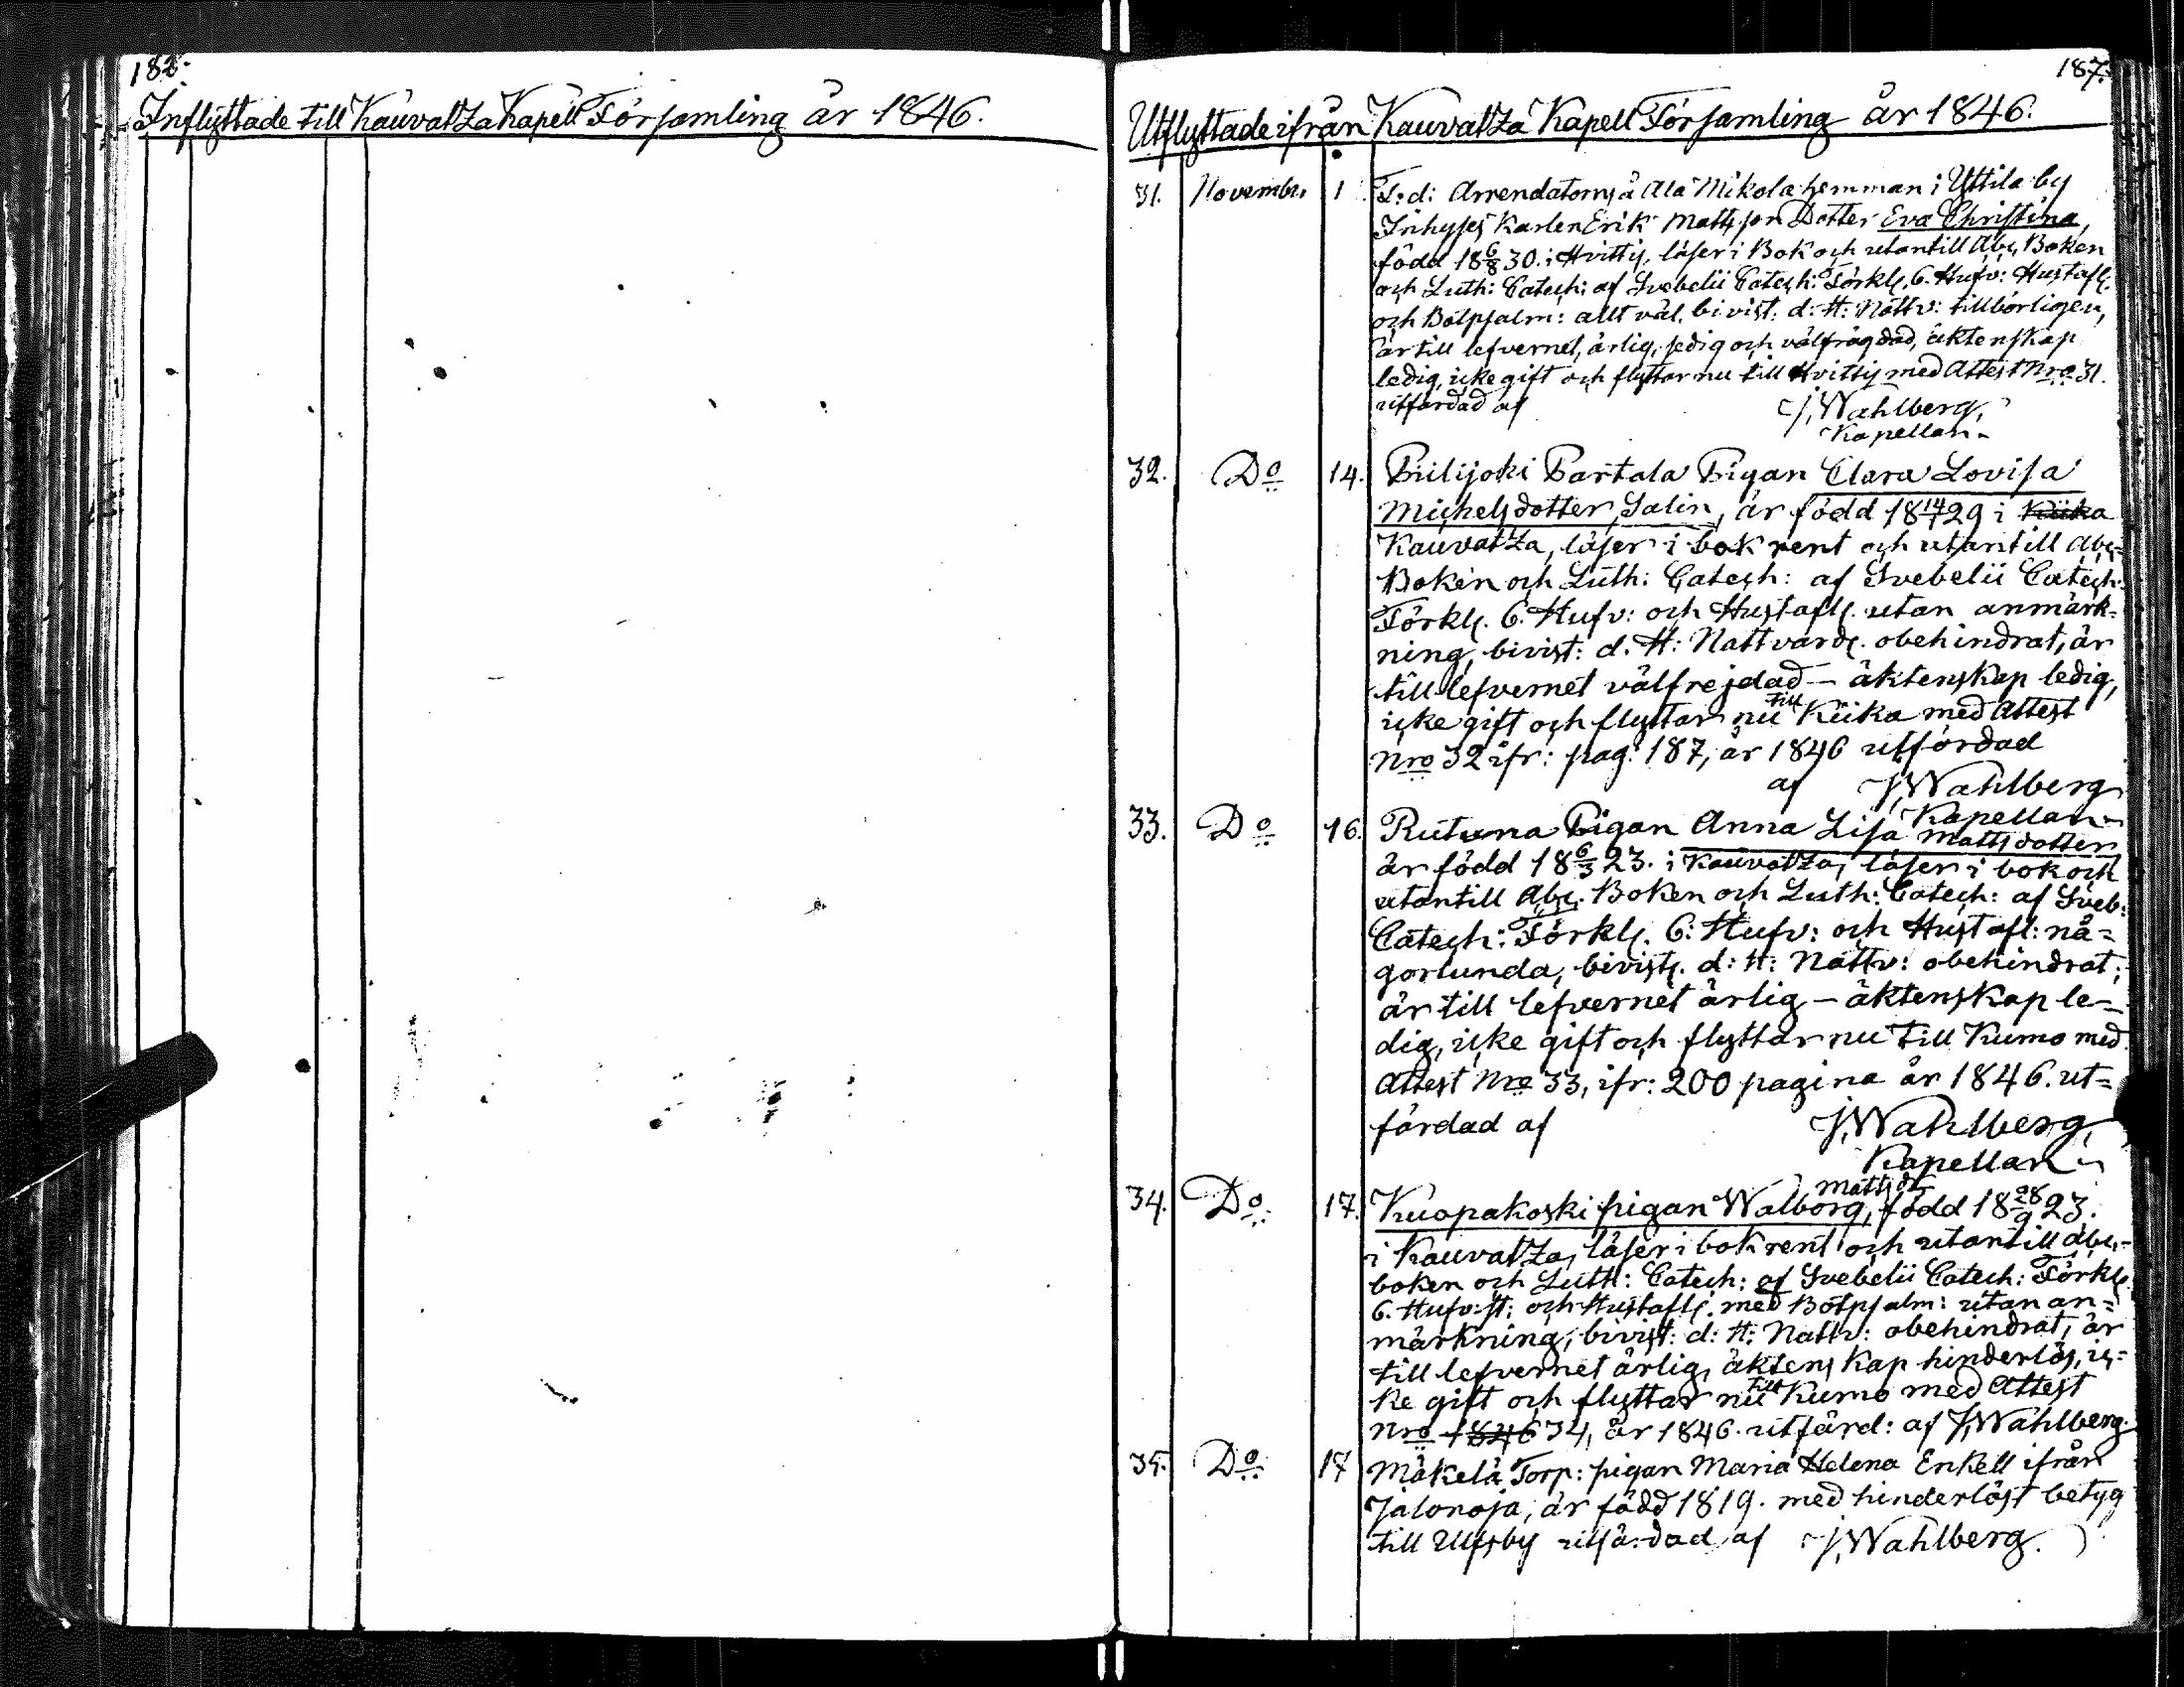 182.
Inflyttade till Kauvatza Kapell Församling år 1846.
187.
Utflyttade ifrån Kauvatza Kapell Församling år 1846.
31. Novembr. 1. F: d: Arrendatorns å Ala Mikola hemman i Yttila by
Inhyses Karlen Erik Mattsson Dotter Eva Christina,
född 18 6/8 30. i Hvittis, läser i Bok och utantill Abc, Boken
och Luth: Catech: af Svebelii Catech: Förkls. 6. Hufv: Hustafl.
och Botpsalm: allt väl. bivist: d: H: Nattv: tillbörligen,
är till lefvernet, ärlig, sedig och välfrägdad, äktenskap
ledig, icke gift och flyttar nu till Hvittis med Attest Nro 31.
utfärdad af J. Wahlberg,
Kapellan.
32. Do 14. Piilijoki Partala Pigan Clara Lovisa
Michelsdotter Salin, är född 18 14/7 29 i Kiika
Kauvatza, läser i bok rent och utantill Abc=
Boken och Luth: Catech: af Svebelii Catech:
Förkls. 6. Hufv: och Hustafl. utan anmärk=
ning, bivist: d. H: Nattvards. obehindrat, är
till lefvernet välfrejdad – äktenskap ledig,
icke gift och flyttar nu till Kiika med Attest
Nro 32 ifr: pag: 187, år 1846 utfärdad
af J. Wahlberg
Kapellan
33. Do 16. Pigan Anna Lisa Mattsdotter
är född 18 6/3 23. i Kauvatza, läser i bok och
utantill Abc. Boken och Luth: Catech: af Sveb:
Catech: Förkls. 6: Hufv: och Hustafl: nå=
gorlunda, bivists. d: H: Nattv: obehindrat,
är till lefvernet ärlig – äktenskap le=
dig, icke gift och flyttar nu till Kumo med
Attest Nro 33, ifr: 200 pagina år 1846. ut=
färdad af J. Wahlberg,
Kapellan
34. Do 17. Kuopakoski pigan Walborg, Mattsdr född 18 28/9 23.
i Kauvatza, läser i bok rent och utantill Abc,=
boken och Luth: Catech: af Svebelii Catech: Förkls.
6. Hufv: H: och Hustafls. med Botpsalm: utan an=
märkning, bivist: d: H: Nattv: obehindrat, är
till lefvernet ärlig, äktenskap hinderlös, ic=
ke gift och flyttar nu till Kumo med Attest
Nro 1846 34, år 1846. utfärd: af J. Wahlberg.
35. Do 17 Mäkelä Torp: pigan Maria Helena Enkell ifrån
Jalonoja, är född 1819. med hinderlöst betyg
till Ulfsby utfärdad af J. Wahlberg.